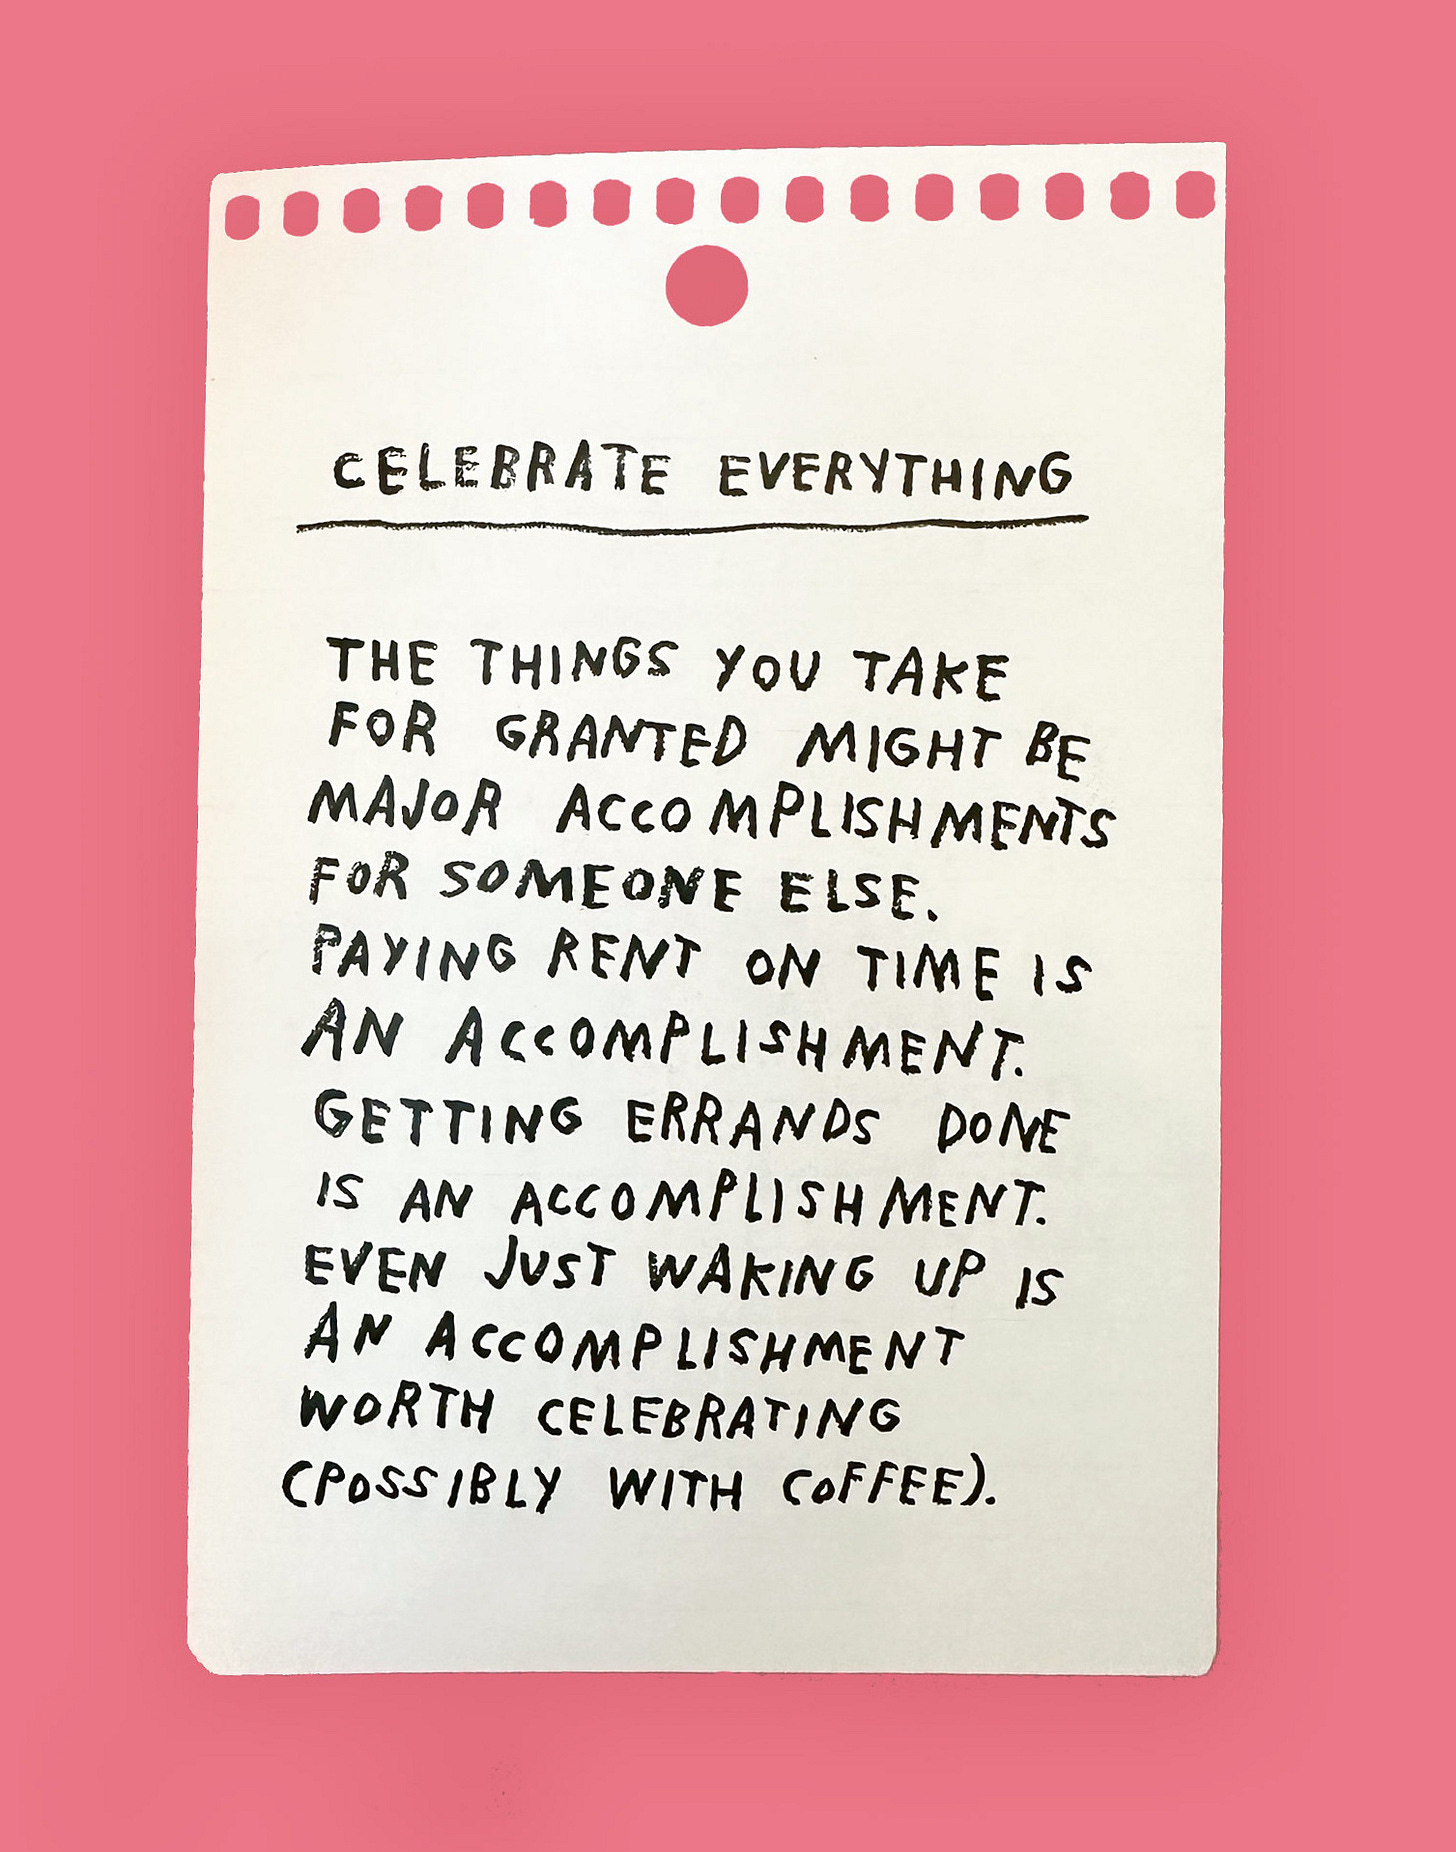 CELEBRATE EVERYTHING
THE THINGS YOU TAKE
FOR GRANTED MIGHT BE
MAJOR ACCOMPLISHMENTS
FOR SOMEONE ELSE.
PAYING RENT ON TIME IS
AN ACCOMPLISHMENT.
GETTING ERRANDS DONE
IS AN ACCOMPLISHMENT.
EVEN JUST WAKING UP IS
AN ACCOMPLISHMENT
WORTH CELEBRATING
(POSSIBLY WITH COFFEE).